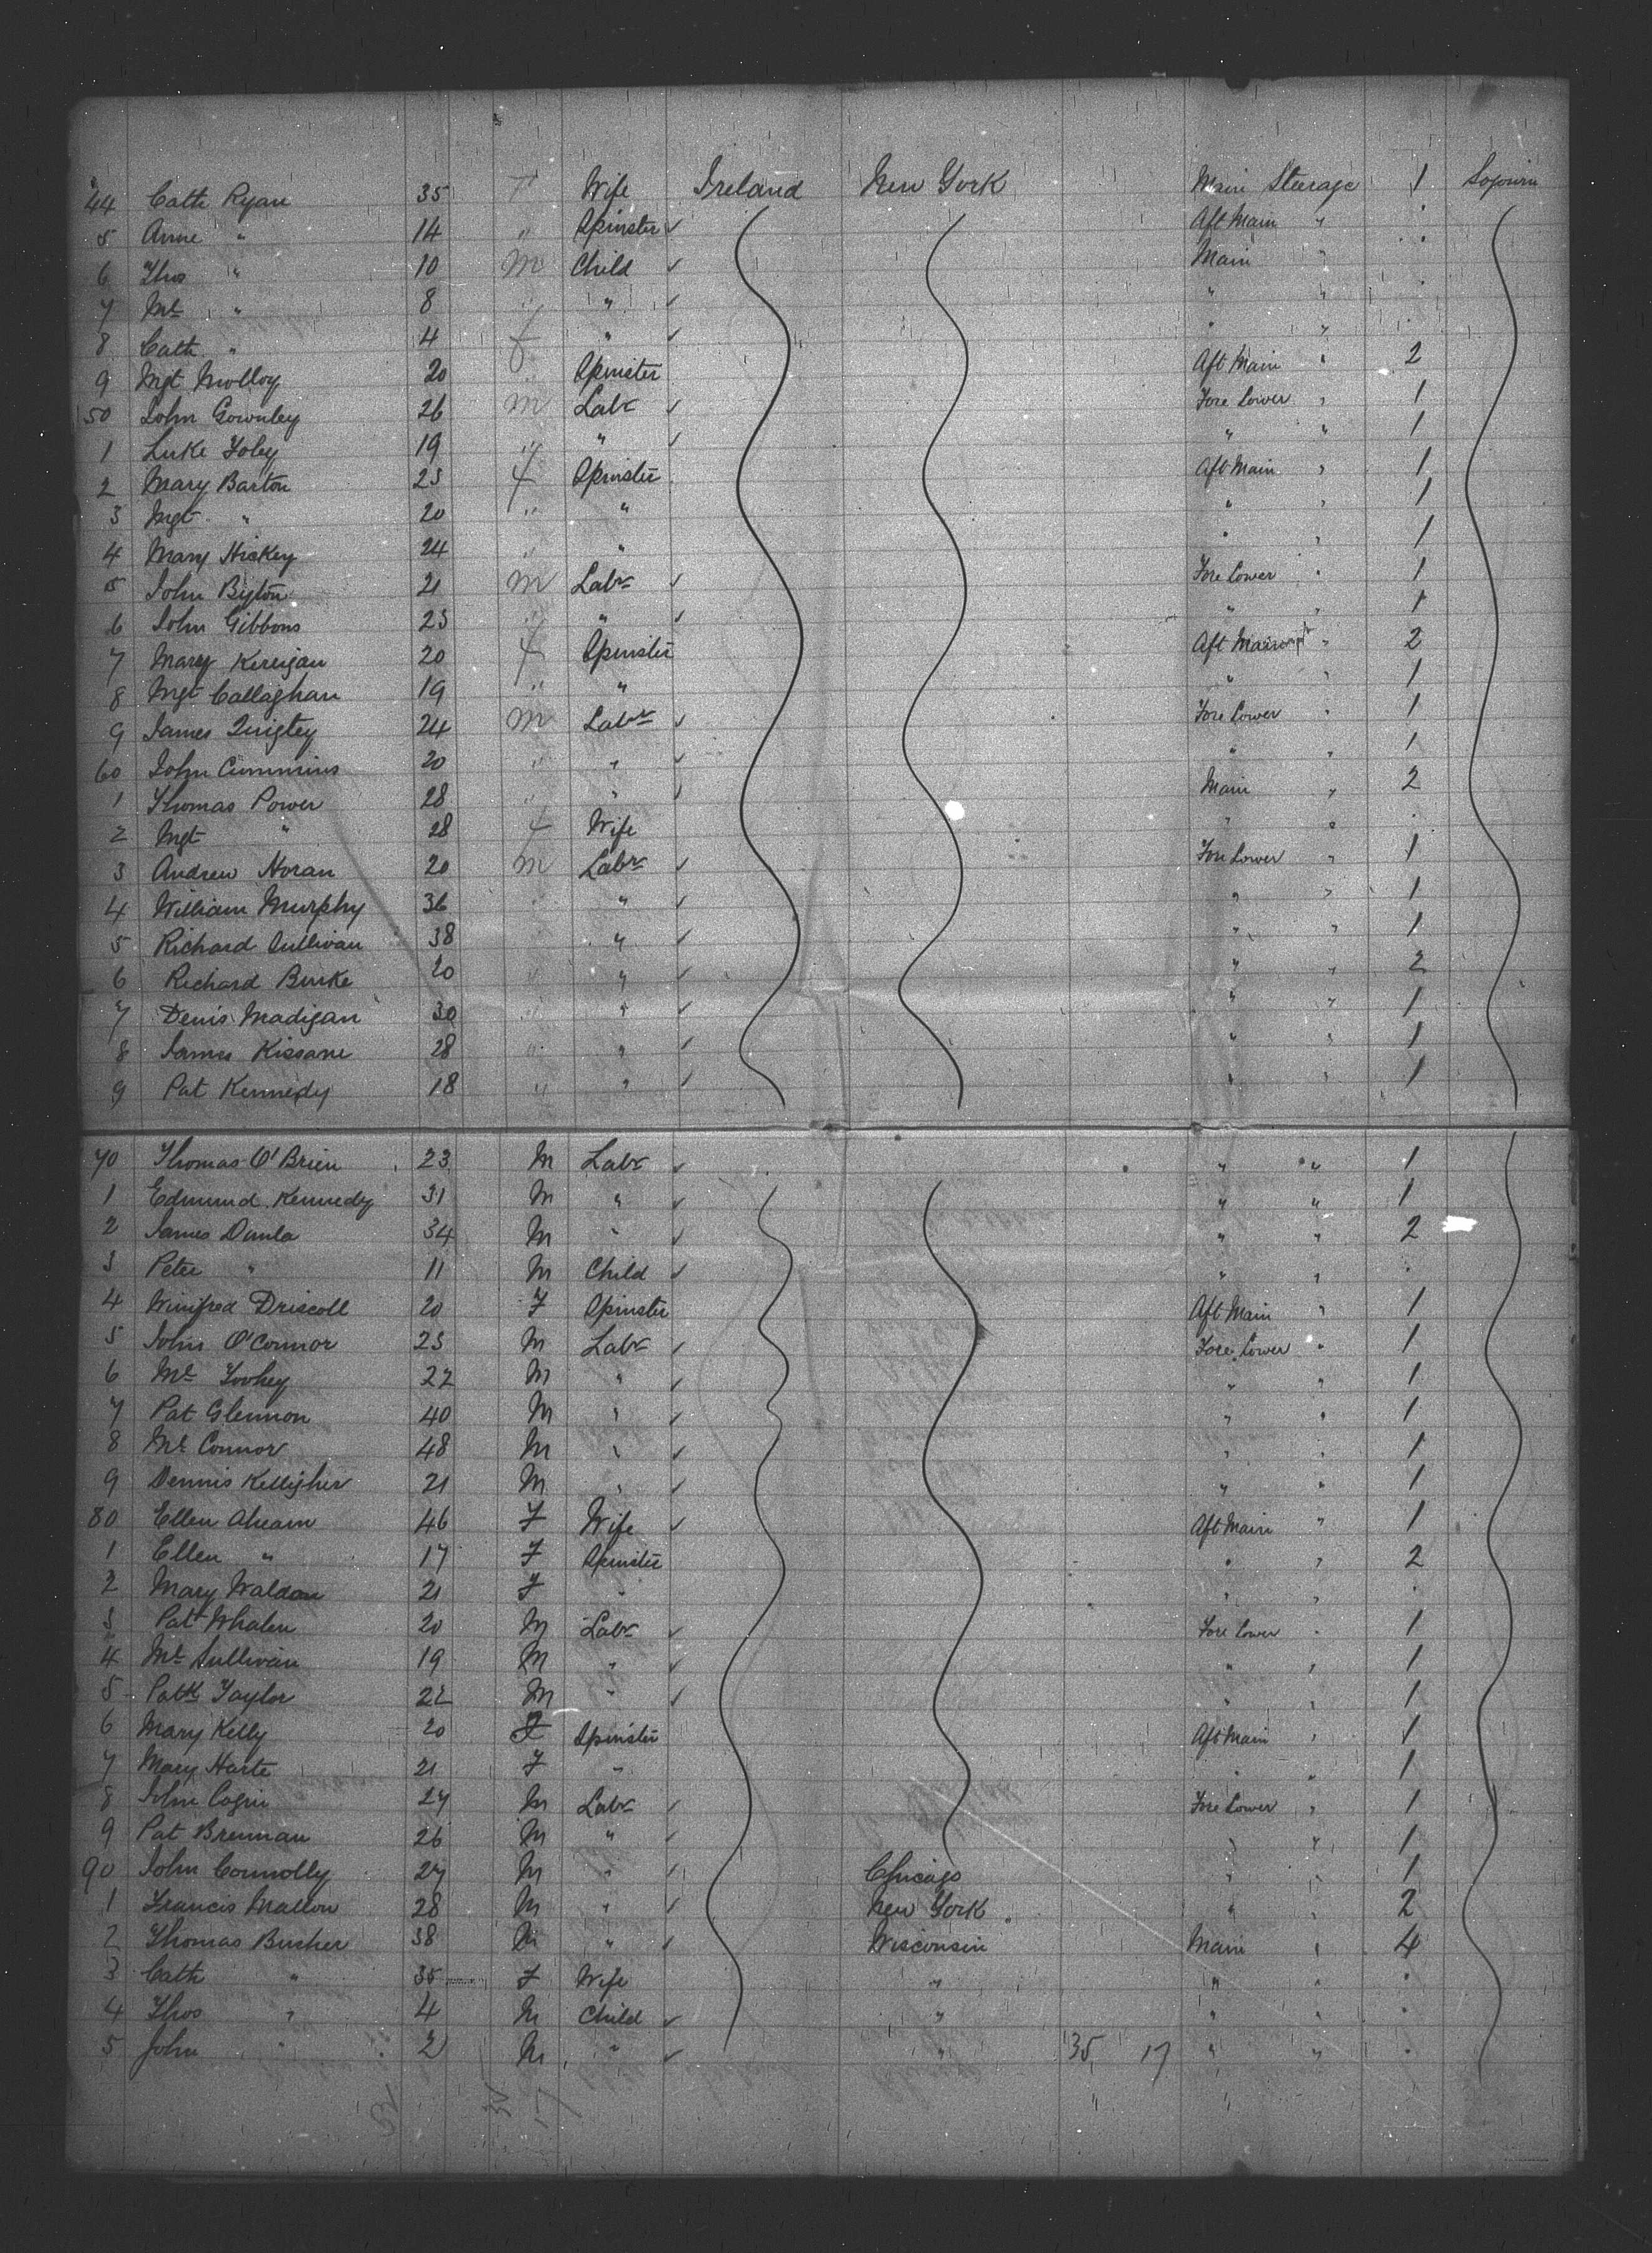 44 Cath Ryan 35 F Wife Ireland New York Main Steerage 1 Sojourn
5 Anne " 14 " Spinster ✓ Aft Main " .
6 Thos " 10 M Child ✓ Main " .
7 Ml " 8 " " ✓ " " .
8 Cath " 4 f " ✓ " " .
9 Mgt Molloy 20 " Spinster Aft Main " 2
50 John Gownley 26 M Labr ✓ Fore Lower " 1
1 Luke Foley 19 " " ✓ " " 1
2 Mary Barton 23 f Spinster Aft Main " 1
3 Mgt " 20 " " " " 1
4 Mary Hickey 24 " " " " 1
5 John 21 M Labr ✓ Fore Lower " 1
6 John Gibbons 23 " " ✓ " " 1
7 Mary Kerrigan 20 f Spinster Aft Main " 2
8 Mgt Callaghan 19 " " " " 1
9 James Quigley 24 M Labr ✓ Fore Lower " 1
60 John Cummins 20 " " ✓ " " 1
1 Thomas Power 28 " " ✓ Main " 2
2 Mgt " 28 f Wife " " .
3 Andrew Horan 20 M Labr ✓ Fore Lower " 1
4 William Murphy 36 " " ✓ " " 1
5 Richard Sullivan 38 " " ✓ " " 1
6 Richard Burke 20 " " ✓ " " 2
7 Denis Madigan 30 " " ✓ " " 1
8 James Kissane 28 " " ✓ " " 1
9 Pat Kennedy 18 " " ✓ " " 1
70 Thomas O'Brien 23 M Labr ✓ " " 1
1 Edmund Kennedy 31 M " ✓ " " 1
2 James 34 M " ✓ " " 2
3 Peter " 11 M Child ✓ " " .
4 Winifred Driscoll 20 F Spinster Aft Main " 1
5 John O'Connor 23 M Labr ✓ Fore Lower " 1
6 Ml Toohey 22 M " ✓ " " 1
7 Pat Glennon 40 M " ✓ " " 1
8 Ml Connor 48 M " ✓ " " 1
9 Dennis Kelligher 21 M " ✓ " " 1
80 Ellen Ahearn 46 F Wife ✓ Aft Main " 1
1 Ellen " 17 F Spinster " " 2
2 Mary Waldan 21 F " " " .
3 Pat Whalen 20 M Labr ✓ Fore Lower " 1
4 Ml Sullivan 19 M " ✓ " " 1
5 Patk Taylor 22 M " ✓ " " 1
6 Mary Kelly 20 F Spinster Aft Main " 1
7 Mary Harte 21 F " " " 1
8 John Cogin 27 M Labr ✓ Fore Lower " 1
9 Pat Brennan 26 M " ✓ " " 1
90 John Connolly 27 M " ✓ Chicago " " 1
1 Francis Mallon 28 M " ✓ New York " " 2
2 Thomas Busher 38 M " ✓ Wisconsin Main " 4
3 Cath " 35 F Wife " " " .
4 Thos " 4 M Child ✓ " " " .
5 John " 2 M " ✓ " 35 17 " " .